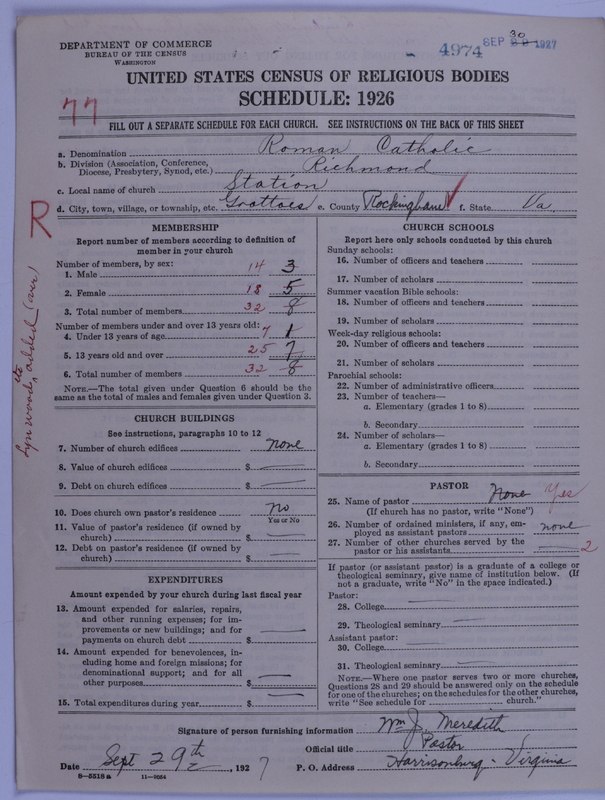 DEPARTMENT OF COMMERCE
BUREAU OF THE CENSUS
WASHINGTON
4974 SEP 30 1927
UNITED STATES CENSUS OF RELIGIOUS BODIES
SCHEDULE: 1926
77
FILL OUT A SEPARATE SCHEDULE FOR EACH CHURCH. SEE INSTRUCTIONS ON THE BACK OF THIS SHEET
a. Denomination Roman Catholic
b. Division (Association, Conference, Diocese, Presbytery, Synod, etc.) Richmond
c. Local name of church Station
d. City, town, village, or township, etc. Grottoes e. County Rockingham f. State Va.
R
MEMBERSHIP
Report number of members according to definition of
member in your church
Number of members, by sex:
1. Male 14 3
2. Female 18 5
3. Total number of members 32 8
Number of members under and over 13 years old:
4. Under 13 years of age 7 1
5. 13 years old and over 25 7
6. Total number of members 32 8
NOTE.—The total given under Question 6 should be the
same as the total of males and females given under Question 3.
Lynwood added
CHURCH BUILDINGS
See instructions, paragraphs 10 to 12
7. Number of church edifices none
8. Value of church edifices $
9. Debt on church edifices $
10. Does church own pastor's residence? no
Yes or No
11. Value of pastor's residence (if owned by
church) $
12. Debt on pastor's residence (if owned by
church) $
EXPENDITURES
Amount expended by your church during last fiscal year
13. Amount expended for salaries, repairs,
and other running expenses; for im-
provements or new buildings; and for
payments on church debt $
14. Amount expended for benevolences, in-
cluding home and foreign missions; for
denominational support; and for all
other purposes $
15. Total expenditures during year $
CHURCH SCHOOLS
Report here only schools conducted by this church
Sunday schools:
16. Number of officers and teachers
17. Number of scholars
Summer vacation Bible schools:
18. Number of officers and teachers
19. Number of scholars
Week-day religious schools:
20. Number of officers and teachers
21. Number of scholars
Parochial schools:
22. Number of administrative officers
23. Number of teachers—
a. Elementary (grades 1 to 8)
b. Secondary
24. Number of scholars—
a. Elementary (grades 1 to 8)
b. Secondary
PASTOR
25. Name of pastor None Yes
(If church has no pastor, write "None")
26. Number of ordained ministers, if any, em-
ployed as assistant pastors none
27. Number of other churches served by the
pastor or his assistants 2
If pastor (or assistant pastor) is a graduate of a college or
theological seminary, give name of institution below. (If
not a graduate, write "No" in the space indicated.)
Pastor:
28. College
29. Theological seminary
Assistant pastor:
30. College
31. Theological seminary
NOTE.—Where one pastor serves two or more churches,
Questions 28 and 29 should be answered only on the schedule
for one of the churches; on the schedules for the other churches,
write "See schedule for church."
Signature of person furnishing information Wm J. Meredith
Official title Pastor
Date Sept 29th, 1927 P. O. Address Harrisonburg - Virginia
8—5518a 11—9034